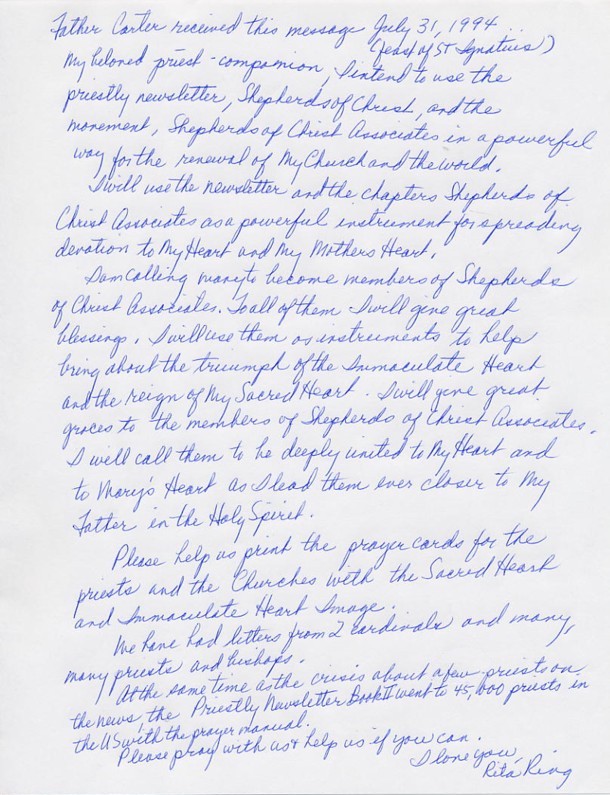 Father Carter received this message July 31, 1994...
(feast of ST Ignatius)
My beloved priest-companion, I intend to use the
priestly newsletter, Shepherds of Christ, and the
movement, Shepherds of Christ Associates in a powerful
way for the renewal of My Church and the world.
I will use the newsletter and the chapters Shepherds of
Christ Associates as a powerful instrument for spreading
devotion to My Heart and My Mothers Heart.
I am calling many to become members of Shepherds
of Christ Associates. To all of them I will give great
blessings. I will use them as instruments to help
bring about the triumph of the Immaculate Heart
and the reign of My Sacred Heart. I will give great
graces to the members of Shepherds of Christ Associates.
I will call them to be deeply united to My Heart and
to Mary's Heart as I lead them ever closer to My
Father in the Holy Spirit.
Please help us print the prayer cards for the
priests and the Churches with the Sacred Heart
and Immaculate Heart Image.
We have had letters from 2 cardinals and many,
many priests and bishops.
At the same time as the crisis about a few priests on
the news, the Priestly Newsletter Book II went to 45,000 priests in
the US with the prayer manual.
Please pray with us & help us if you can.
I love you,
Rita Ring